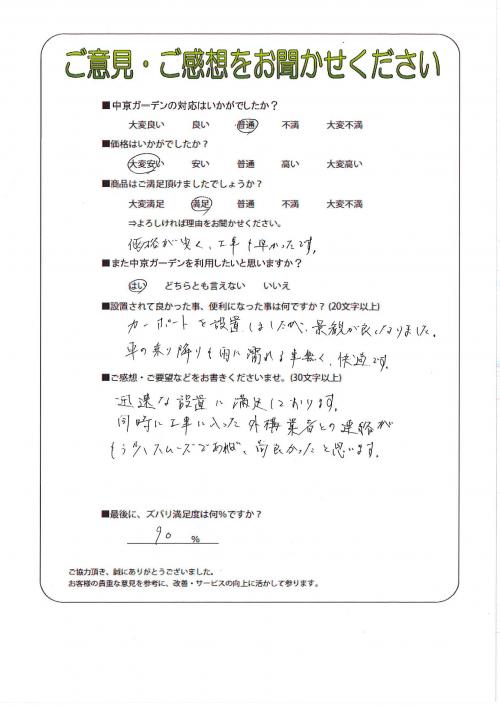 ご意見・ご感想をお聞かせください
■中京ガーデンの対応はいかがでしたか？
大変良い 良い 普通 不満 大変不満
■価格はいかがでしたか？
大変安い 安い 普通 高い 大変高い
■商品はご満足頂けましたでしょうか？
大変満足 満足 普通 不満 大変不満
⇒よろしければ理由をお聞かせください。
価格が安く、工事も早かったです。
■また中京ガーデンを利用したいと思いますか？
はい どちらとも言えない いいえ
■設置されて良かった事、便利になった事は何ですか？(20文字以上)
カーポートを設置しましたが、景観が良くなりました。
車の乗り降りも雨に濡れる事無く、快適です。
■ご感想・ご要望などをお書きくださいませ。(30文字以上)
迅速な設置に満足しております。
同時に工事に入った外構業者との連絡が
もう少しスムーズであれば、尚良かったと思います。
■最後に、ズバリ満足度は何％ですか？
90 ％
ご協力頂き、誠にありがとうございました。
お客様の貴重な意見を参考に、改善・サービスの向上に活かして参ります。